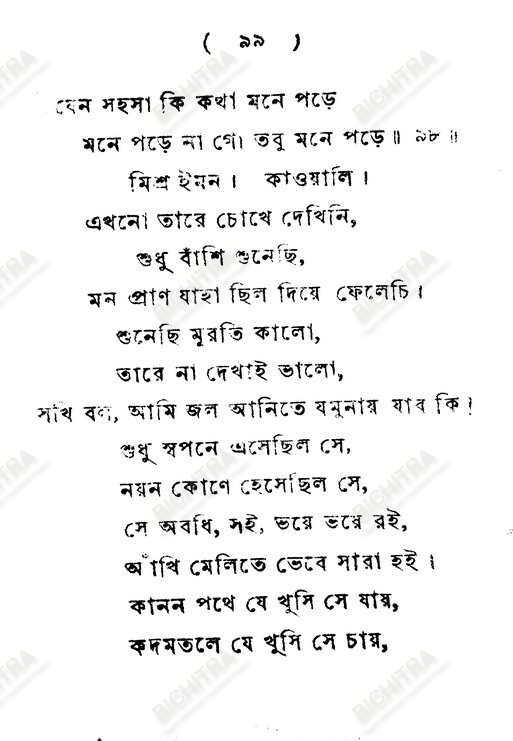 ( ৯৯ )
যেন সহসা কি কথা মনে পড়ে
মনে পড়ে না গো তবু মনে পড়ে॥ ৯৮॥
মিশ্র ইমন। কাওয়ালি।
এখনো তারে চোখে দেখিনি,
শুধু বাঁশি শুনেছি,
মন প্রাণ যাহা ছিল দিয়ে ফেলেচি।
শুনেছি মূরতি কালো,
তারে না দেখাই ভালো,
সখি বল, আমি জল আনিতে যমুনায় যাব কি!
শুধু স্বপনে এসেছিল সে,
নয়ন কোণে হেসেছিল সে,
সে অবধি, সই, ভয়ে ভয়ে রই,
আঁখি মেলিতে ভেবে সারা হই।
কানন পথে যে খুসি সে যায়,
কদমতলে যে খুসি সে চায়,
BICHITRA